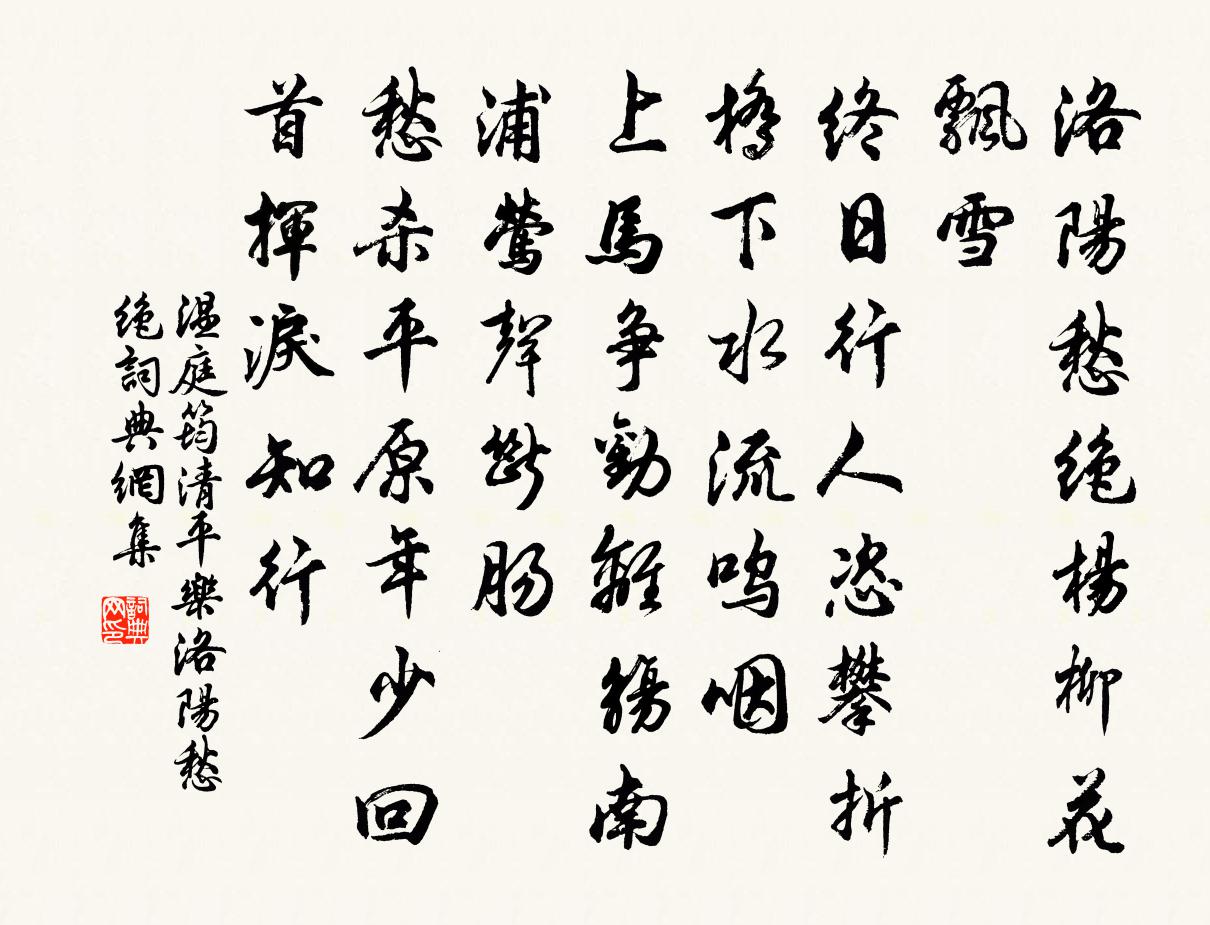 洛陽愁絕楊柳花
飄雪
終日行人恣攀折
橋下水流鳴咽
上馬爭勸離觴南
浦鶯聲斷腸
愁殺平原年少回
首揮淚知行
溫庭筠清平樂洛陽愁
絕詞典網集
詞典网印